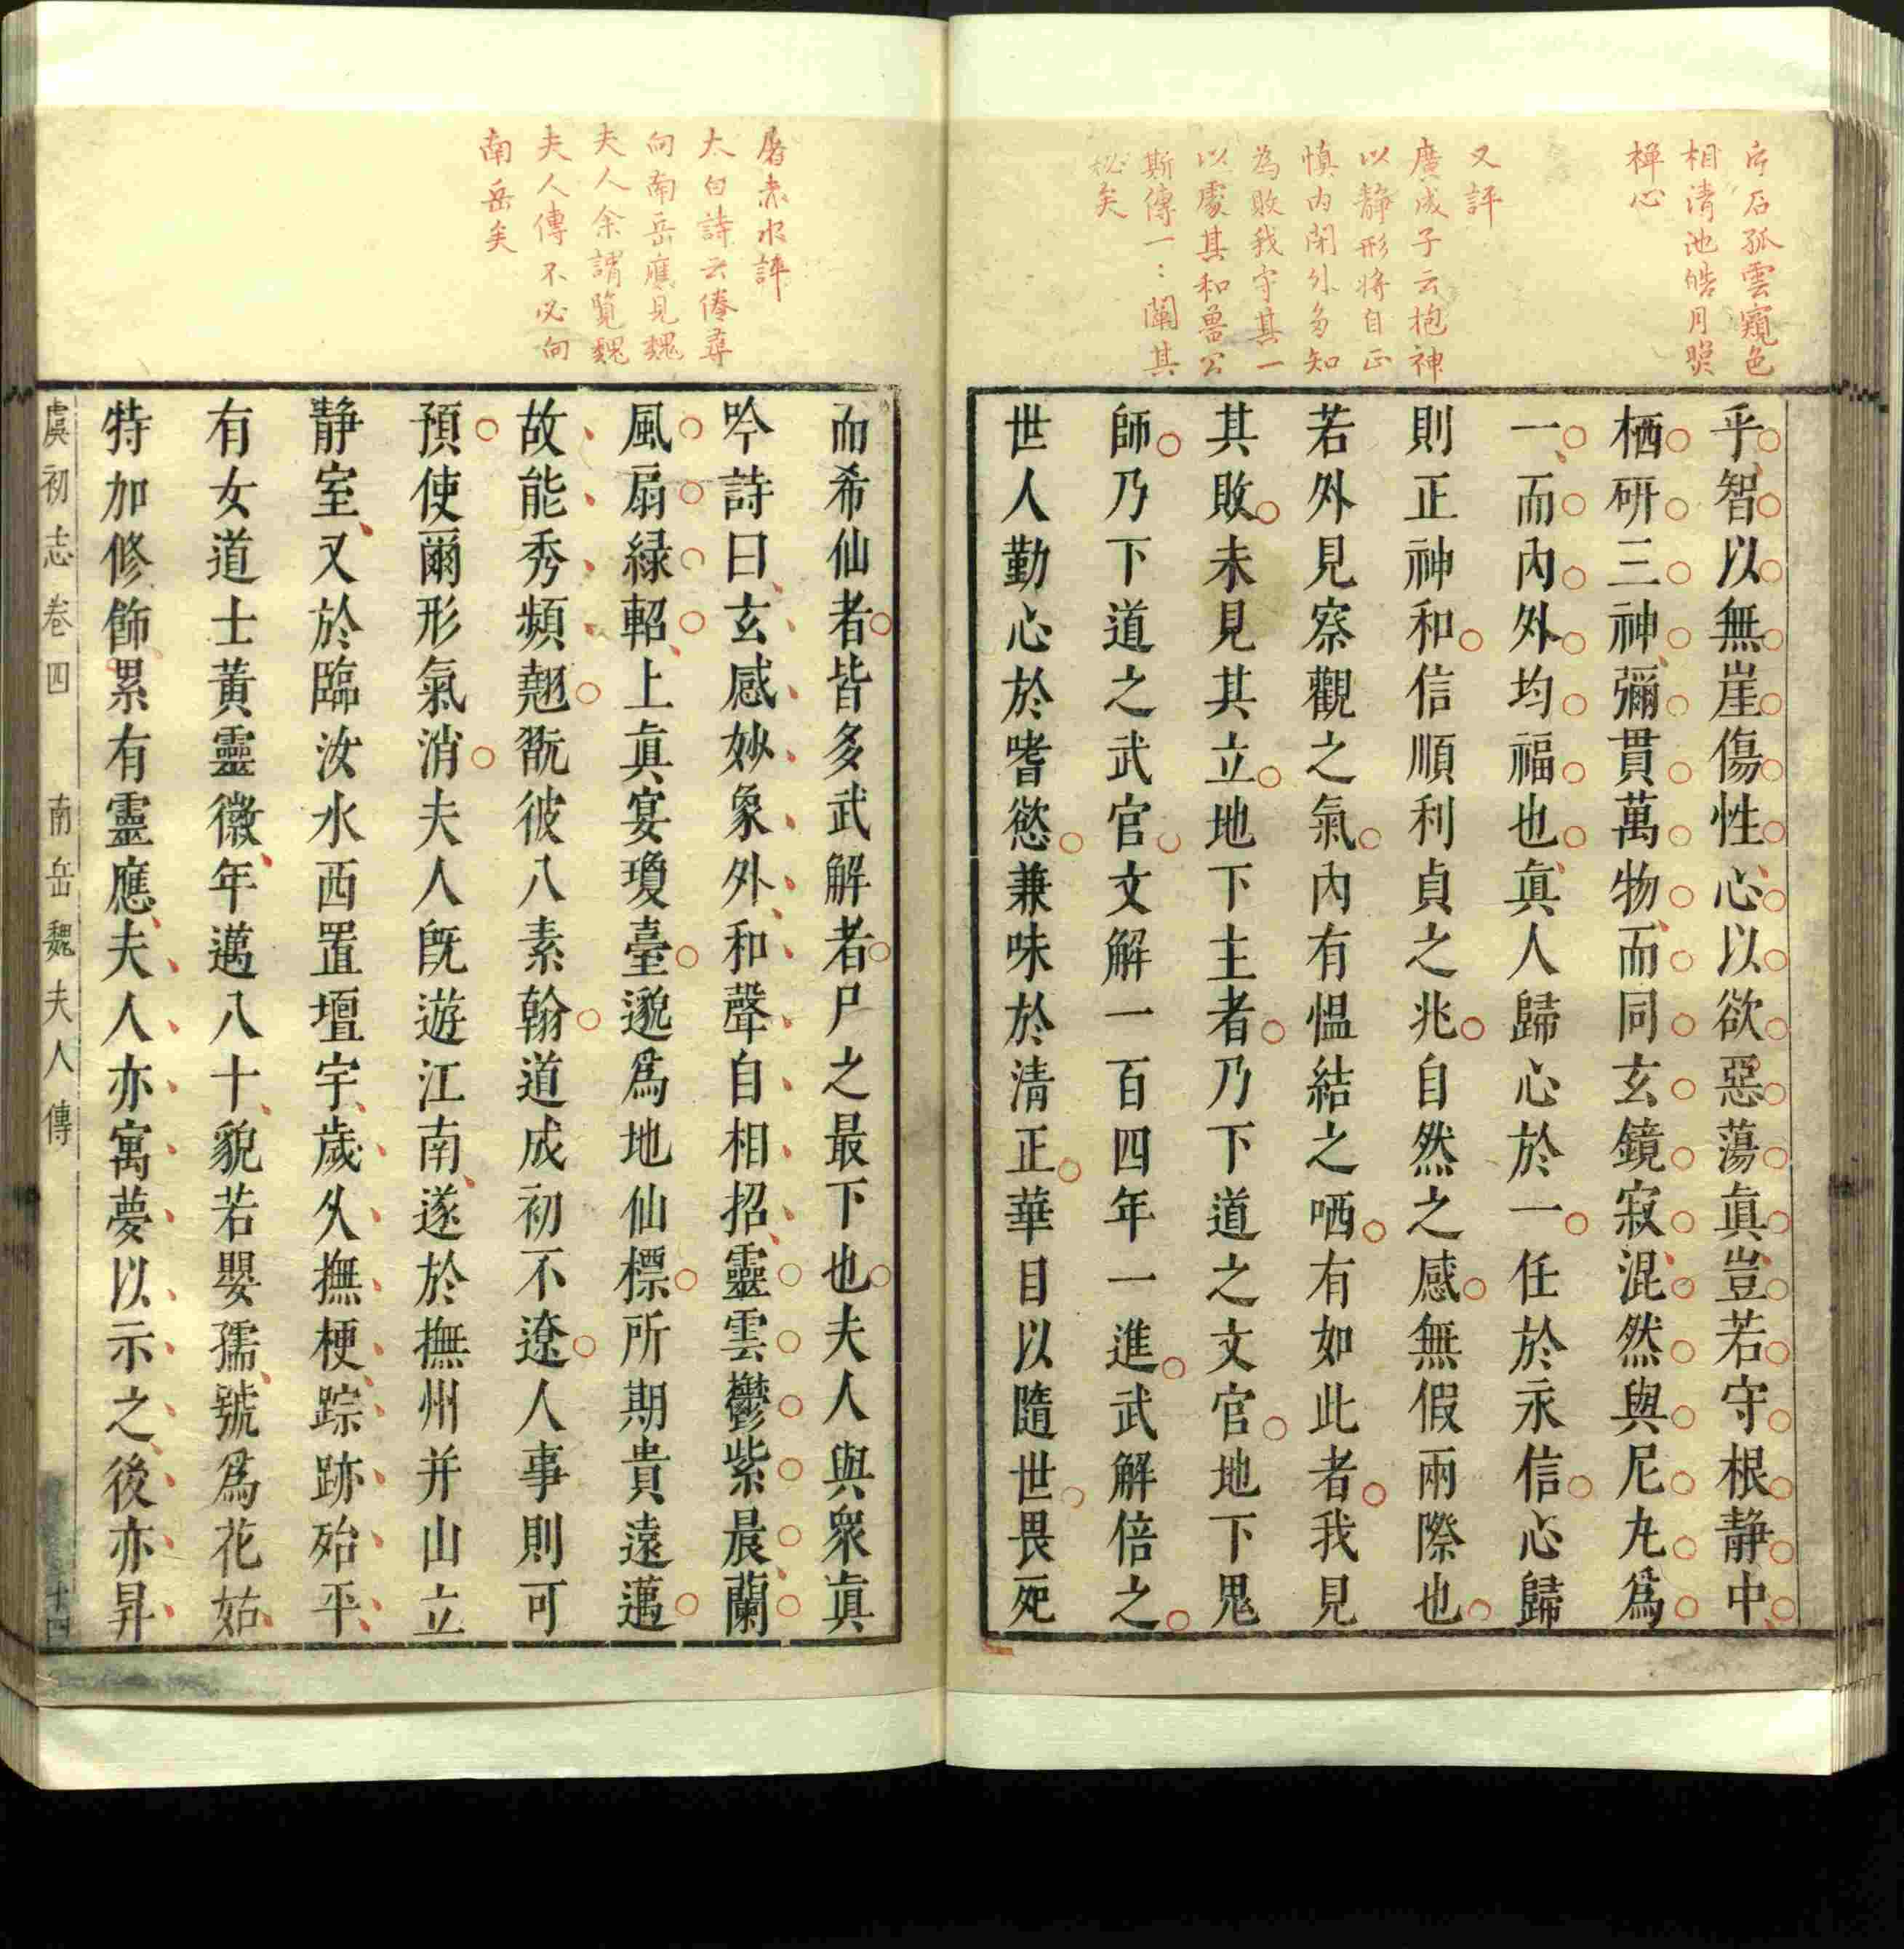 片石孤雲窺色
相清池皓月照
禅心
又評
廣成子云抱神
以静形将自正
慎内閑外多知
為敗我守其一
以處其和魯公
斯傳一：闡其
秘矣
乎智以無崖傷性心以欲惡蕩眞豈若守根静中
栖研三神彌貫萬物而同玄鏡寂混然與尼丸爲
一而内外均福也眞人歸心於一任於永信心歸
則正神和信順利貞之兆自然之感無假兩際也
若外見察觀之氣内有愠結之哂有如此者我見
其敗未見其立地下主者乃下道之文官地下鬼
師乃下道之武官文解一百四年一進武解倍之
世人勤心於嗜慾兼味於清正華目以隨世畏死
屠赤水評
太白詩云儻尋
向南岳應見魏
夫人余謂覽魏
夫人傳不必向
南岳矣
而希仙者皆多武解者尸之最下也夫人與衆眞
吟詩曰玄感妙象外和聲自相招靈雲鬱紫晨蘭
風扇緑軺上眞宴瓊臺邈爲地仙標所期貴遠邁
故能秀頻翹翫彼八素翰道成初不遼人事則可
預使爾形氣消夫人旣遊江南遂於撫州并山立
静室又於臨汝水西置壇宇歲久撫梗踪跡殆平
有女道士黄靈徽年邁八十貌若嬰孺號爲花姑
特加修飾累有靈應夫人亦寓夢以示之後亦昇
虞初志卷四 南岳魏夫人傳 十四